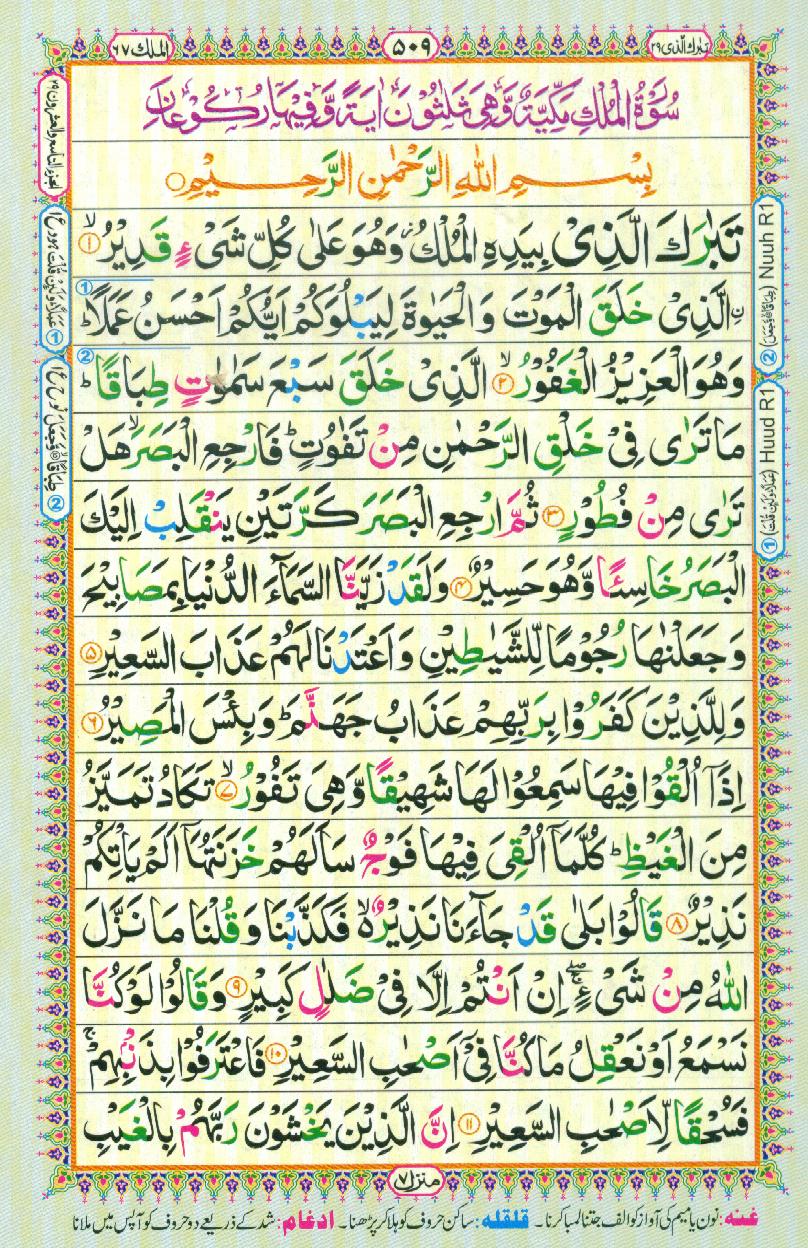 تبٰرک الذی ۲۹
۵۰۹
الملك ۶۷
سُوْرَةُ الْمُلْكِ مَكِّيَّةٌ وَّهِيَ ثَلٰثُوْنَ اٰيَةً وَّفِيْهَا رُكُوْعَانِ
بِسْمِ اللهِ الرَّحْمٰنِ الرَّحِيْمِ
تَبٰرَكَ الَّذِیْ بِيَدِهِ الْمُلْكُ ز وَهُوَ عَلٰى كُلِّ شَیْءٍ قَدِيْرُ ۙ‏﴿۱﴾
ۨالَّذِیْ خَلَقَ الْمَوْتَ وَالْحَيٰوةَ لِيَبْلُوَكُمْ اَيُّكُمْ اَحْسَنُ عَمَلًا ؕ ①
وَهُوَ الْعَزِيْزُ الْغَفُوْرُ ۙ‏﴿۲﴾ الَّذِیْ خَلَقَ سَبْعَ سَمٰوٰتٍ طِبَاقًا ؕ ②
مَا تَرٰى فِیْ خَلْقِ الرَّحْمٰنِ مِنْ تَفٰوُتٍ ؕ فَارْجِعِ الْبَصَرَ ۙ هَلْ
تَرٰى مِنْ فُطُوْرٍ ﴿۳﴾ ثُمَّ ارْجِعِ الْبَصَرَ كَرَّتَيْنِ يَنْقَلِبْ اِلَيْكَ
الْبَصَرُ خَاسِئًا وَّهُوَ حَسِيْرٌ ﴿۴﴾ وَلَقَدْ زَيَّنَّا السَّمَآءَ الدُّنْيَا بِمَصَابِيْحَ
وَجَعَلْنٰهَا رُجُوْمًا لِّلشَّيٰطِيْنِ وَاَعْتَدْنَا لَهُمْ عَذَابَ السَّعِيْرِ ﴿۵﴾
وَلِلَّذِيْنَ كَفَرُوْا بِرَبِّهِمْ عَذَابُ جَهَنَّمَ ؕ وَبِئْسَ الْمَصِيْرُ ﴿۶﴾
اِذَآ اُلْقُوْا فِيْهَا سَمِعُوْا لَهَا شَهِيْقًا وَّهِیَ تَفُوْرُ ۙ‏﴿۷﴾ تَكَادُ تَمَيَّزُ
مِنَ الْغَيْظِ ؕ كُلَّمَآ اُلْقِیَ فِيْهَا فَوْجٌ سَاَلَهُمْ خَزَنَتُهَآ اَلَمْ يَاْتِكُمْ
نَذِيْرٌ ﴿۸﴾ قَالُوْا بَلٰى قَدْ جَآءَنَا نَذِيْرٌ ۙ۬ فَكَذَّبْنَا وَقُلْنَا مَا نَزَّلَ
اللّٰهُ مِنْ شَیْءٍ ۖۚ اِنْ اَنْتُمْ اِلَّا فِیْ ضَلٰلٍ كَبِيْرٍ ﴿۹﴾ وَقَالُوْا لَوْ كُنَّا
نَسْمَعُ اَوْ نَعْقِلُ مَا كُنَّا فِیْۤ اَصْحٰبِ السَّعِيْرِ ﴿۱۰﴾ فَاعْتَرَفُوْا بِذَنْبِهِمْ ۚ
فَسُحْقًا لِّاَصْحٰبِ السَّعِيْرِ ﴿۱۱﴾ اِنَّ الَّذِيْنَ يَخْشَوْنَ رَبَّهُمْ بِالْغَيْبِ
② Nuuh R1
① Huud R1
منزل ۷
غنہ: نون یا میم کی آواز کو الف جتنا لمبا کرنا۔ قلقلہ: ساکن حروف کو ہلا کر پڑھنا۔ ادغام: شد کے ذریعے دو حروف کو آپس میں ملانا